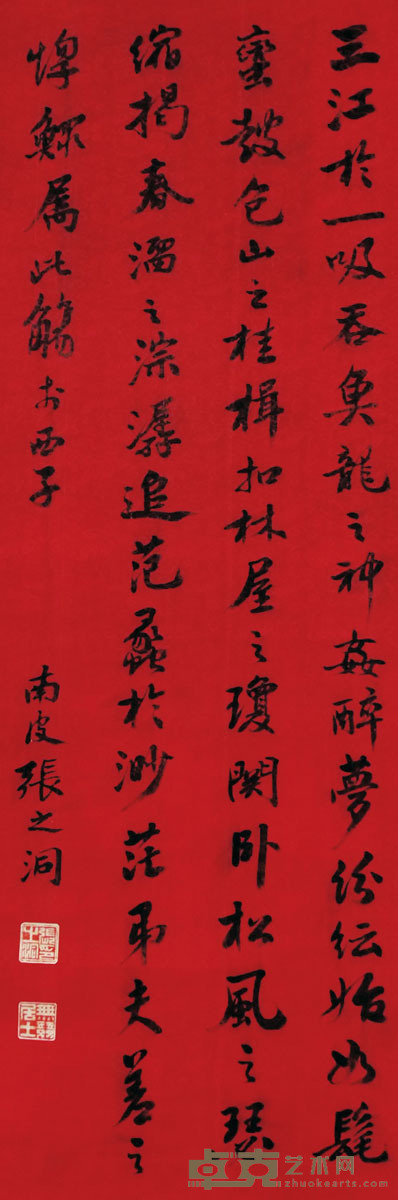 三江於一吸吞魚龍之神姦醉夢紛紜始如髦
蠻鼓包山之桂楫扣林屋之瓊関卧松風之瑟
縮揭春溜之淙潺追范蠡於渺茫弔夫差之
惸鰥属此觴於西子
南皮張之洞
張之洞印
無競居士
卓克艺术网
www.zhuokearts.com